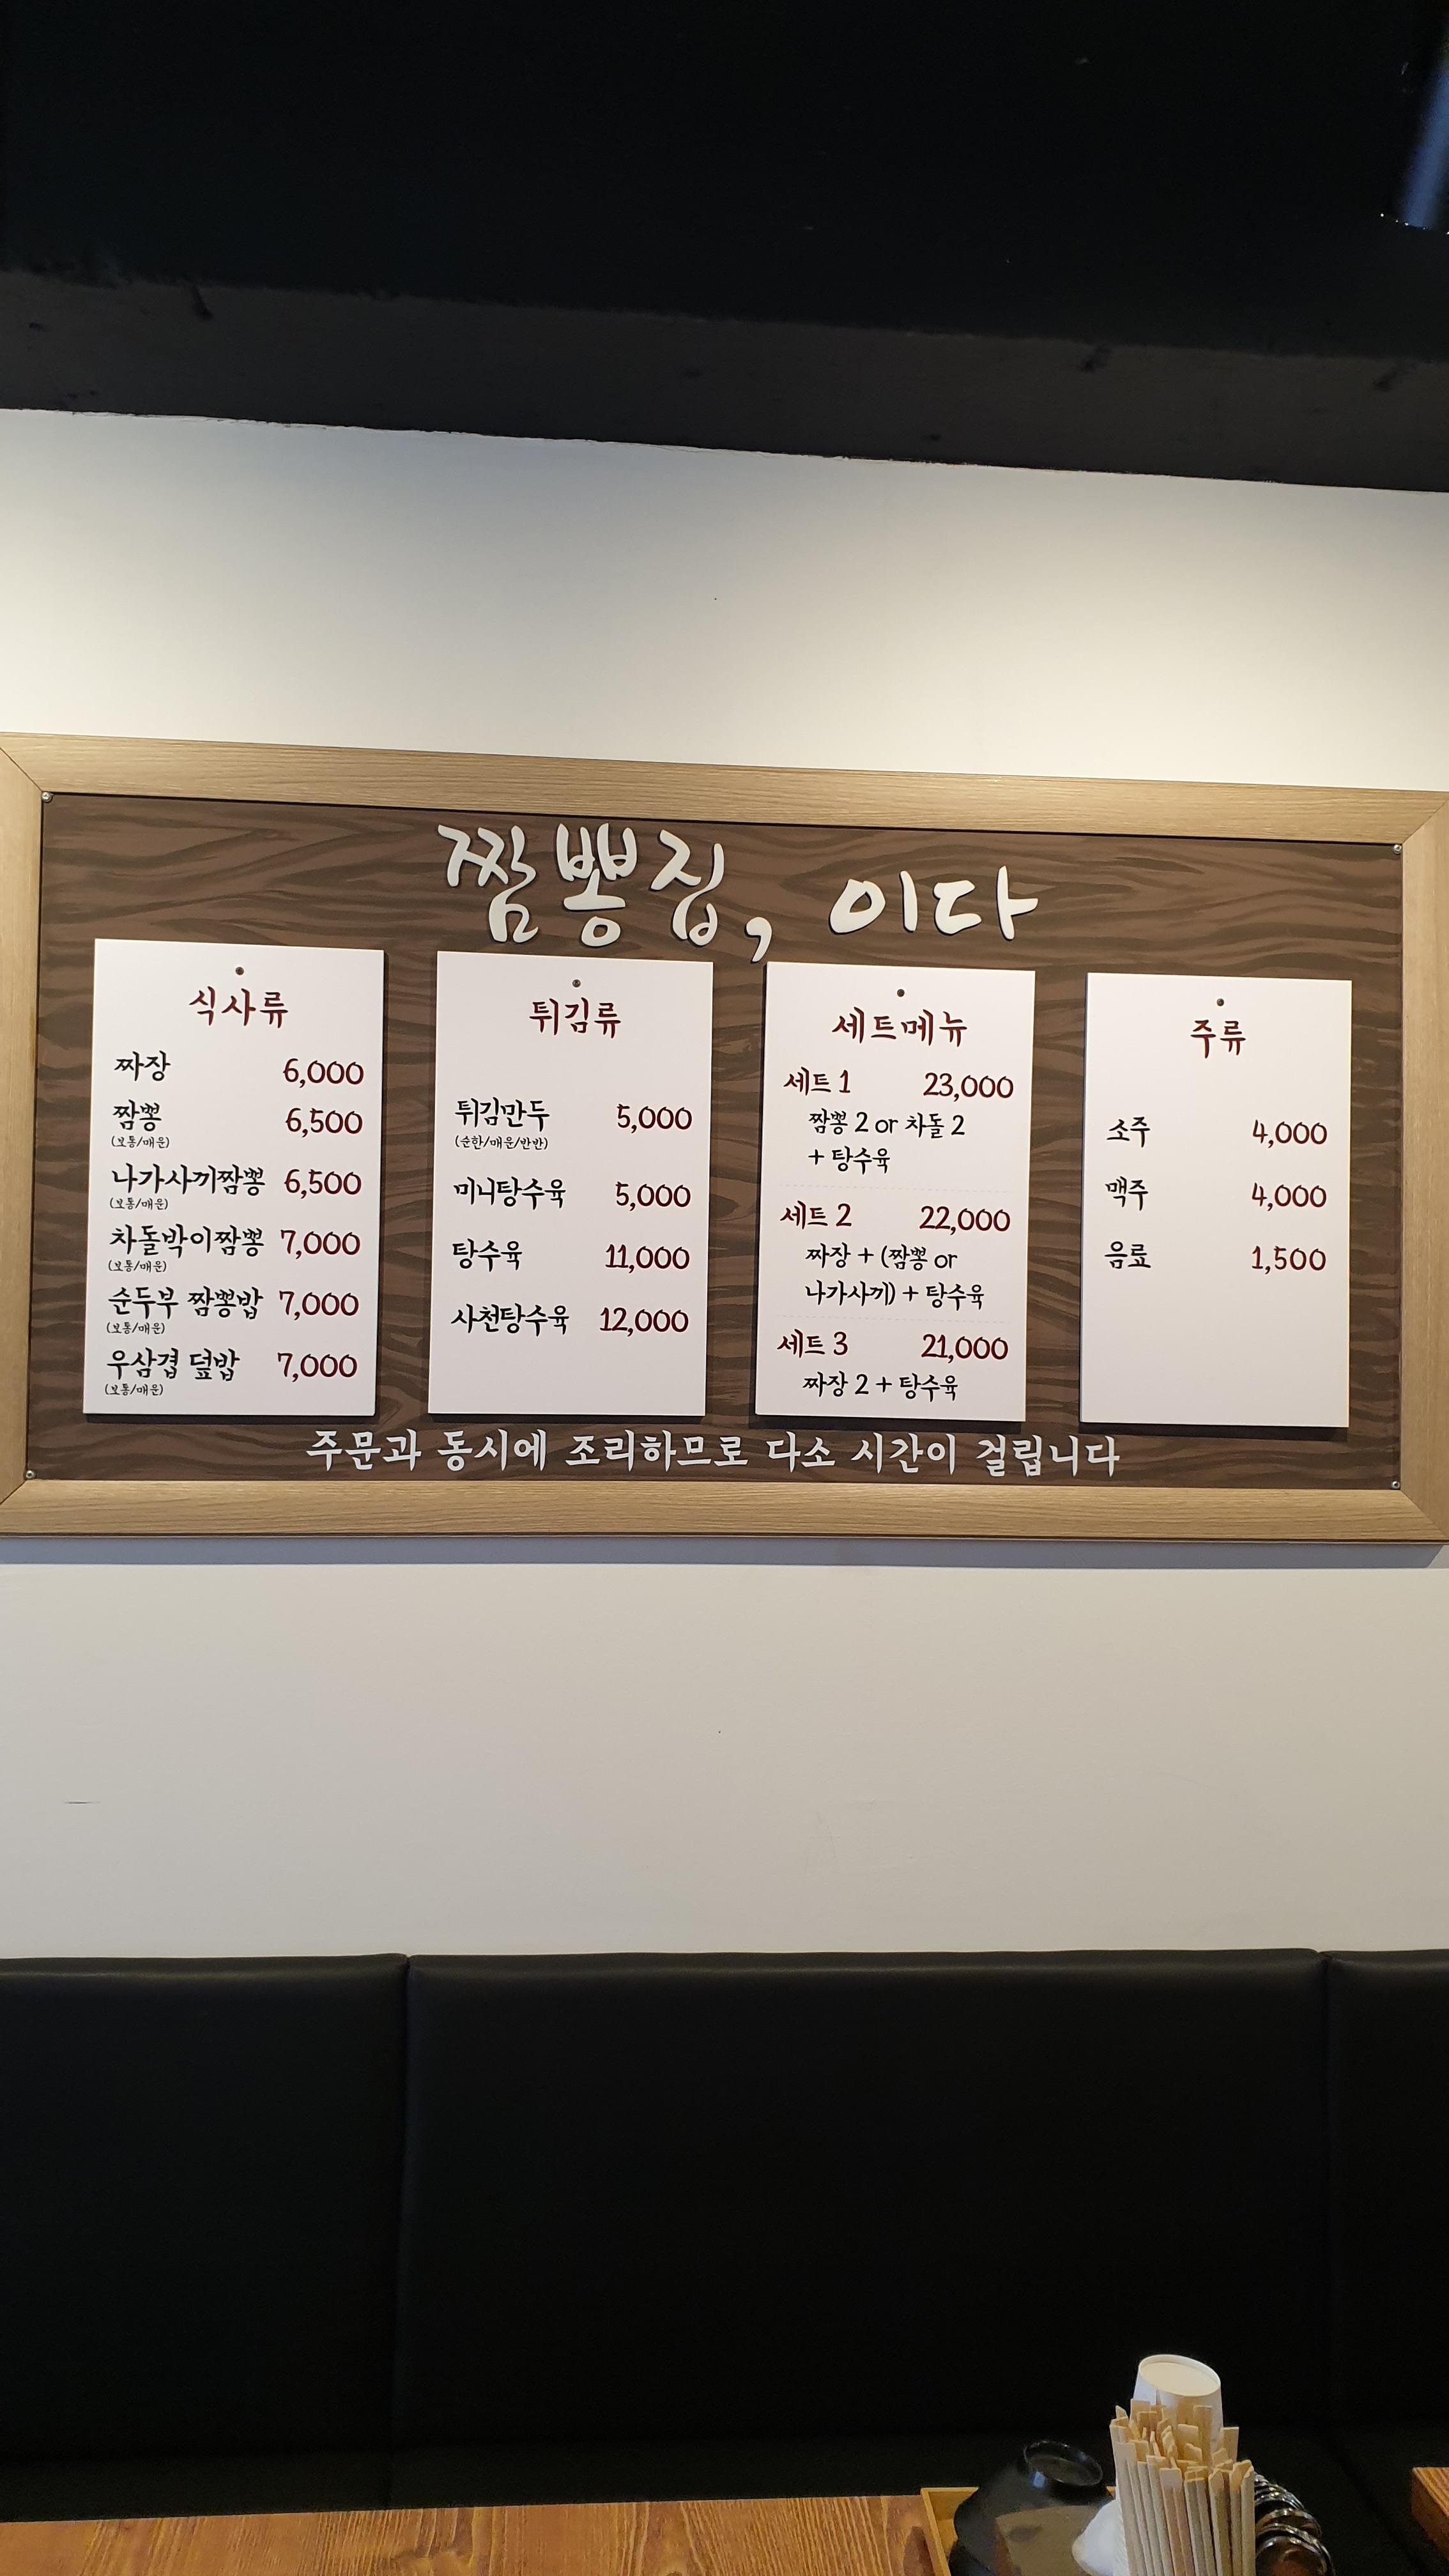 짬뽕집, 이다
식사류
짜장 6,000
짬뽕 6,500
(보통/매운)
나가사끼짬뽕 6,500
(보통/매운)
차돌박이짬뽕 7,000
(보통/매운)
순두부 짬뽕밥 7,000
(보통/매운)
우삼겹 덮밥 7,000
(보통/매운)
튀김류
튀김만두 5,000
(순한/매운/반반)
미니탕수육 5,000
탕수육 11,000
사천탕수육 12,000
세트메뉴
세트 1 23,000
짬뽕 2 or 차돌 2
+ 탕수육
세트 2 22,000
짜장 + (짬뽕 or
나가사끼) + 탕수육
세트 3 21,000
짜장 2 + 탕수육
주류
소주 4,000
맥주 4,000
음료 1,500
주문과 동시에 조리하므로 다소 시간이 걸립니다